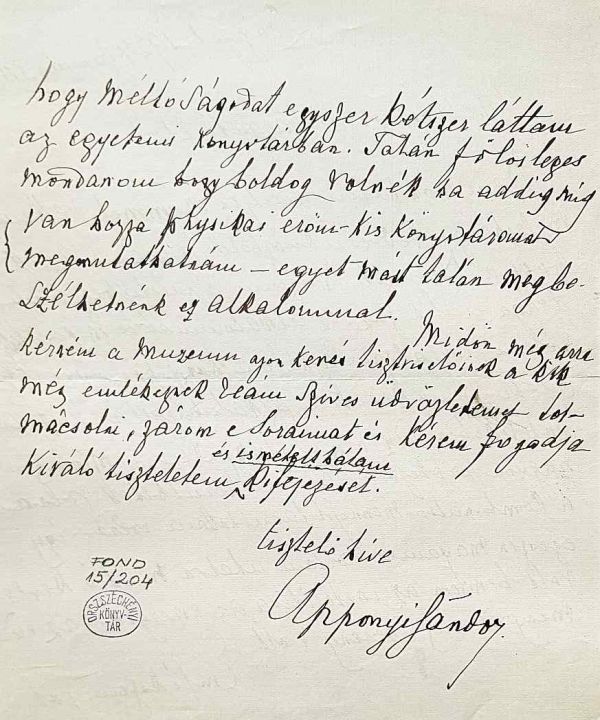 hogy Méltóságodat egyszer kétszer láttam
az egyetemi Könyvtárban. Talán fölösleges
mondanom hogy boldog volnék ha addig míg
van hozzá physikai eröm – kis Könyvtáromat
megmutathatnám – egyet mást talán megbe-
szélhetnénk ez alkalommal.
Midőn még arra
kérném a Muzeum azon kevés tisztviselőinek a kik
még emlékeznek reám szíves üdvözletemet tol-
mácsolni, zárom e soraimat és kérem fogadja
és ismételt hálám
Kiváló tiszteletem kifejezését.
tisztelő híve
Apponyi Sándor
FOND
15/204
ORSZ. SZÉCHÉNYI
KÖNYV-
TÁR